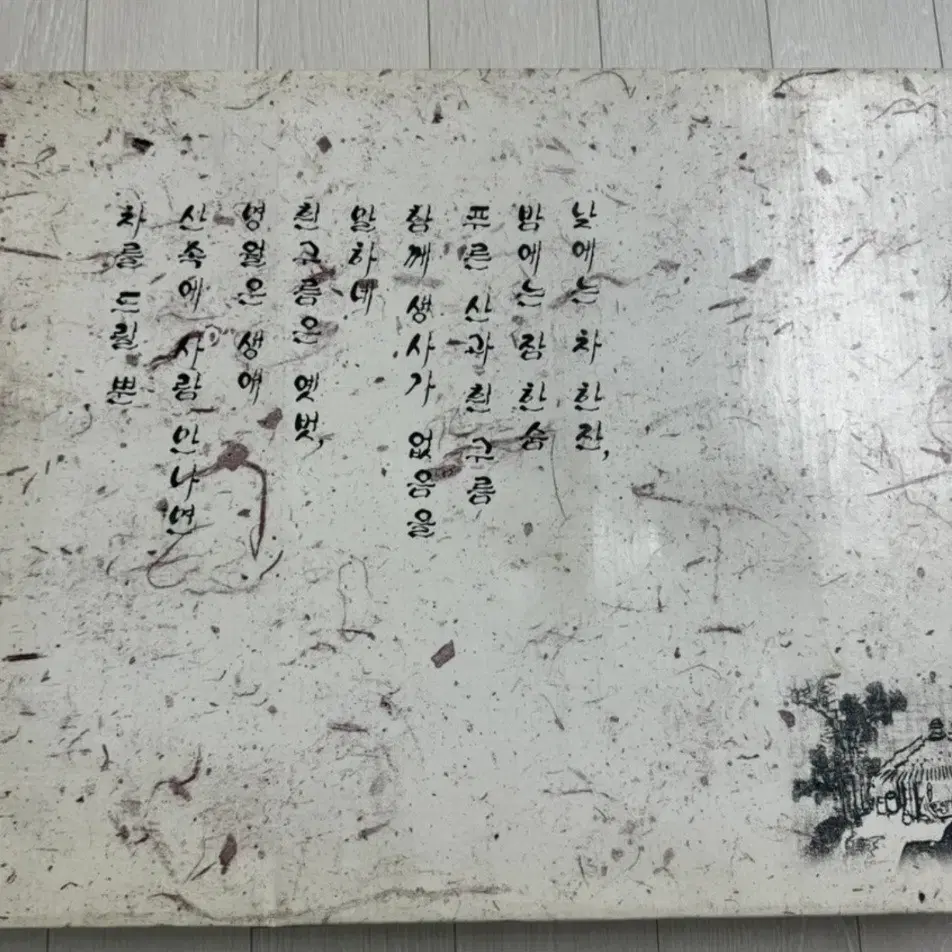 낮에는 차 한잔,
밤에는 잠 한숨
푸른 산과 흰 구름
함께 생사가 없음을
말하네
흰구름은 옛 벗,
명월은 생애
산속에 사람 만나면
차를 드릴 뿐